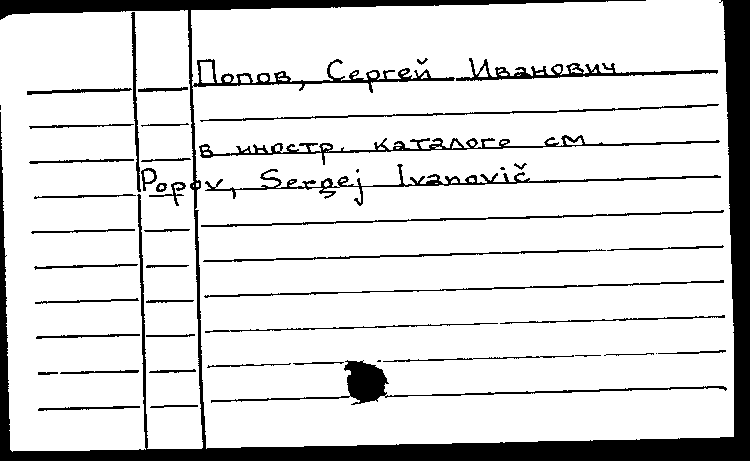 Попов, Сергей Иванович
в иностр. каталоге см.
Popov, Sergej Ivanovič